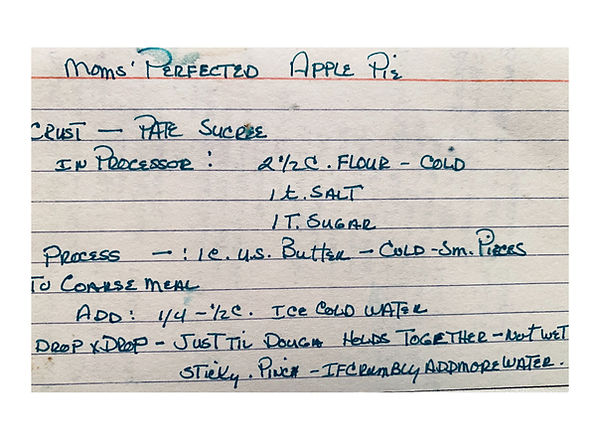 Moms' Perfected Apple Pie
Crust — Pate Sucree
In Processor : 2 1/2 C. Flour - Cold
1 t. Salt
1 T. Sugar
Process — : 1 c. U.S. Butter - Cold - Sm. Pieces
To Coarse Meal
Add : 1/4 - 1/2 C. Ice Cold Water
Drop x Drop - Just Til Dough Holds Together - Not Wet
Sticky. Pinch - If Crumbly Add More Water.